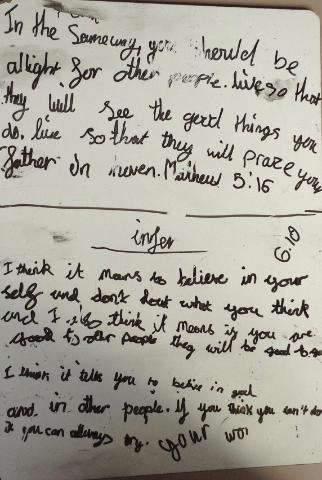 In the Sameway, you should be
alight for other people. live so that
they will see the good things you
do. live so that they will praze your
father in heven. Mathew 5:16
infer
6:10
I think it means to believe in your
self and don't dout what you think
and I also think it means if you are
good to other people they will be good to
I think it tells you to belive in god
and in other people. if you think you can't do
it you can allways try. your